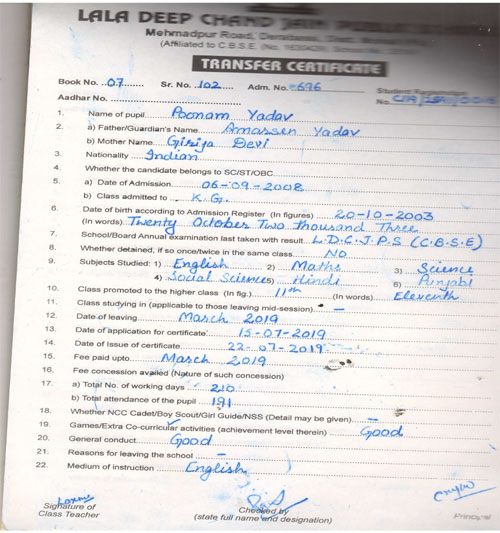 LALA DEEP CHAND JAIN PUBLIC
Mehmadpur Road,
(Affiliated to C.B.S.E. (No.
TRANSFER CERTIFICATE
Book No. 07 Sr. No. 102 Adm. No. 696 Student Registration
Aadhar No. No.
1. Name of pupil Poonam Yadav
2. a) Father/Guardian's Name Amarsen Yadav
b) Mother Name Girija Devi
3. Nationality Indian
4. Whether the candidate belongs to SC/ST/OBC
5. a) Date of Admission 06-09-2008
b) Class admitted to K.G.
6. Date of birth according to Admission Register (In figures) 20-10-2003
(In words) Twenty October Two Thousand Three
7. School/Board Annual examination last taken with result L.D.C.J.P.S (C.B.S.E)
8. Whether detained, if so once/twice in the same class NO
9. Subjects Studied: 1) English 2) Maths 3) Science
4) Social Science 5) Hindi 6) Punjabi
10. Class promoted to the higher class (In fig.) 11th (In words) Eleventh
11. Class studying in (applicable to those leaving mid-session) —
12. Date of leaving March 2019
13. Date of application for certificate 15-07-2019
14. Date of Issue of certificate 22-07-2019
15. Fee paid upto March 2019
16. Fee concession availed (Nature of such concession)
17. a) Total No. of working days 210
b) Total attendance of the pupil 191
18. Whether NCC Cadet/Boy Scout/Girl Guide/NSS (Detail may be given) —
19. Games/Extra Co-curricular activities (achievement level therein) Good
20. General conduct Good
21. Reasons for leaving the school —
22. Medium of instruction English
Signature of Checked by
Class Teacher (state full name and designation) Principal